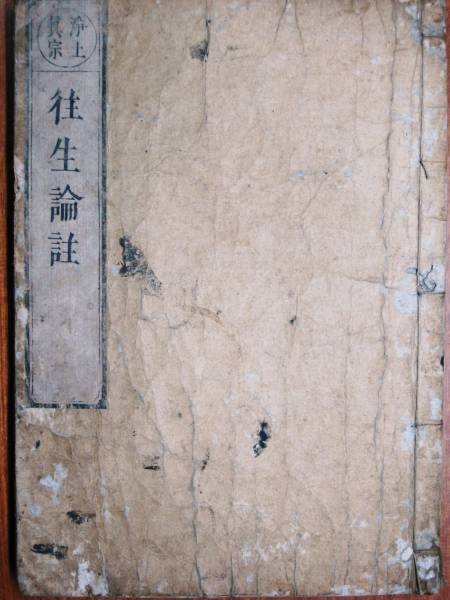 浄土
真宗
往生論註